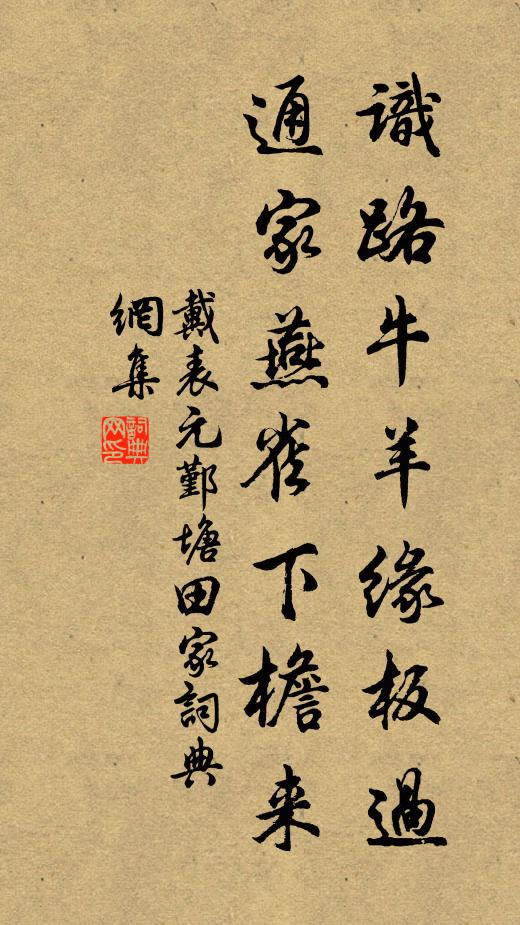 識路牛羊緣板過
通家燕雀下檐来
戴表元鄞塘田家詞典
網集
詞典網印